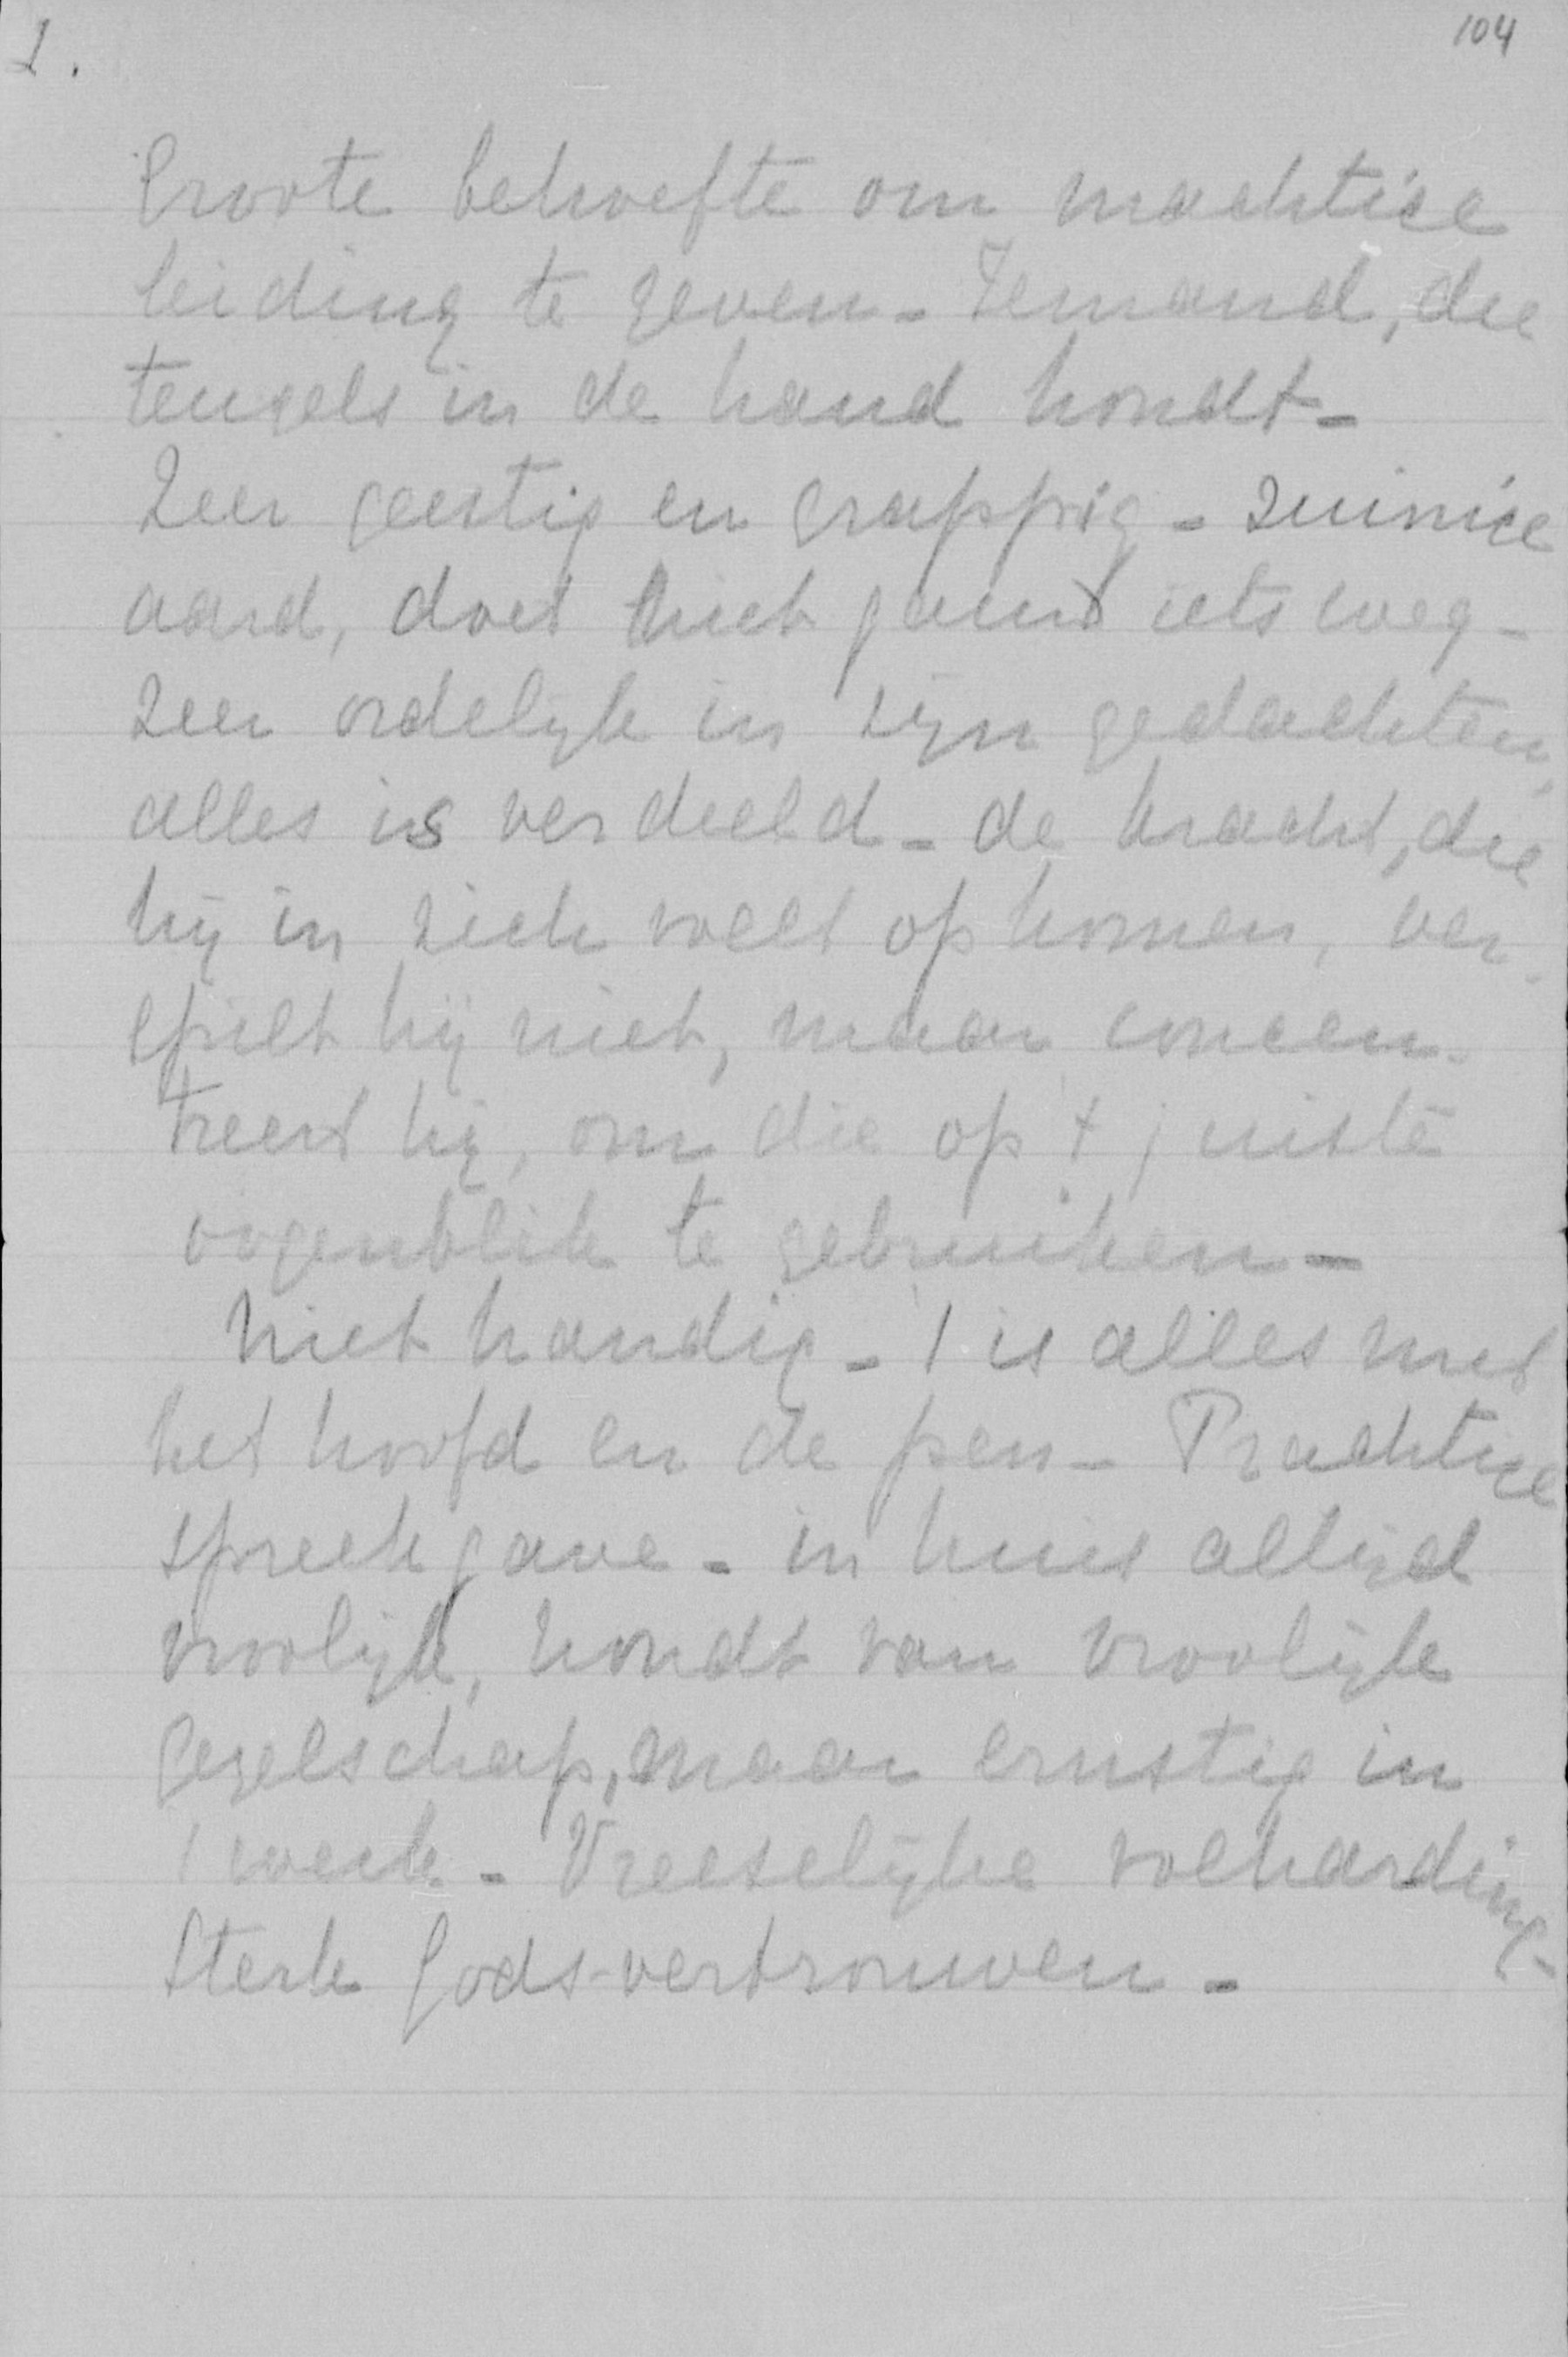 2.
104
Groote behoefte om machtige
leiding te geven - Iemand, die
teugels in de hand houdt -
Zeer geestig en grappig - zuinige
aard, doet niet gauw iets weg -
Zeer ordelijk in zijn gedachten,
alles is verdeeld - de kracht, die
hij in zich voelt opkomen, ver-
spilt hij niet, maar concen-
treert hij, om die op 't juiste
oogenblik te gebruiken -
Niet handig - 't is alles met
het hoofd en de pen - Prachtige
spreekgave - in huis altijd
vroolijk, houdt van vroolijk
gezelschap, maar ernstig in
't werk - Vreeselijke volharding -
Sterk Godsvertrouwen -